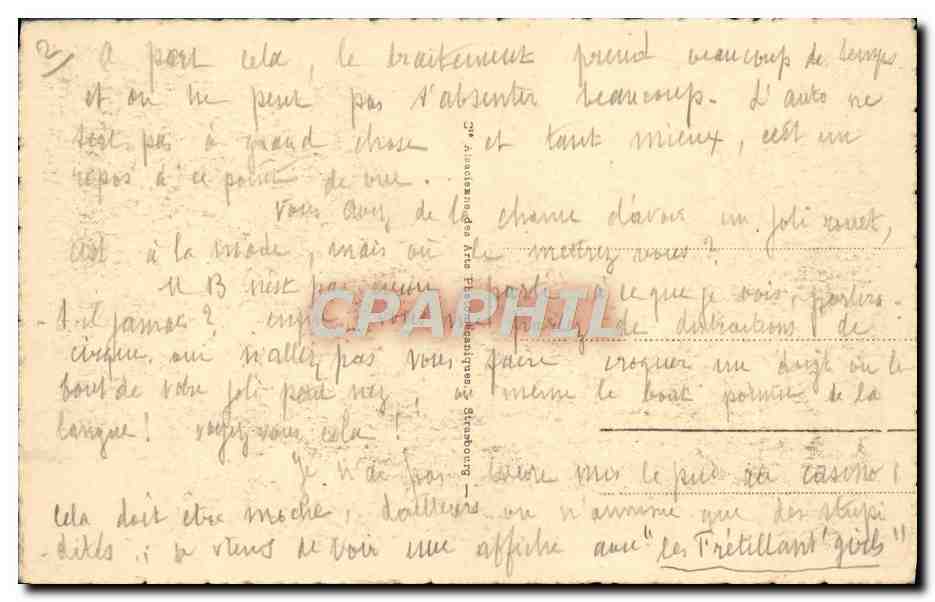 2/ A part cela, le traitement prend beaucoup de temps
et on ne peut pas s'absenter beaucoup. L'auto ne
sert pas à grand chose et tant mieux, c'est un
repos à ce point de vue.
Vous avez de la chance d'avoir un joli rouet,
c'est à la mode, mais où le mettrez vous?
M B n'est pas encore parti à ce que je vois, partira
-t-il jamais? de distractions de
cirque, n'allez pas vous faire croquer un doigt ou le
bout de votre joli petit nez, ou même le bout pointu de la
langue! voyez vous cela!
Je n'ai pas encore mis le pied au casino,
cela doit être moche, d'ailleurs on n'annonce que des stupi
-dités; je viens de voir une affiche avec "les Frétillant' girls"
Cie Alsacienne des Arts Photomécaniques, Strasbourg
CPAPHIL